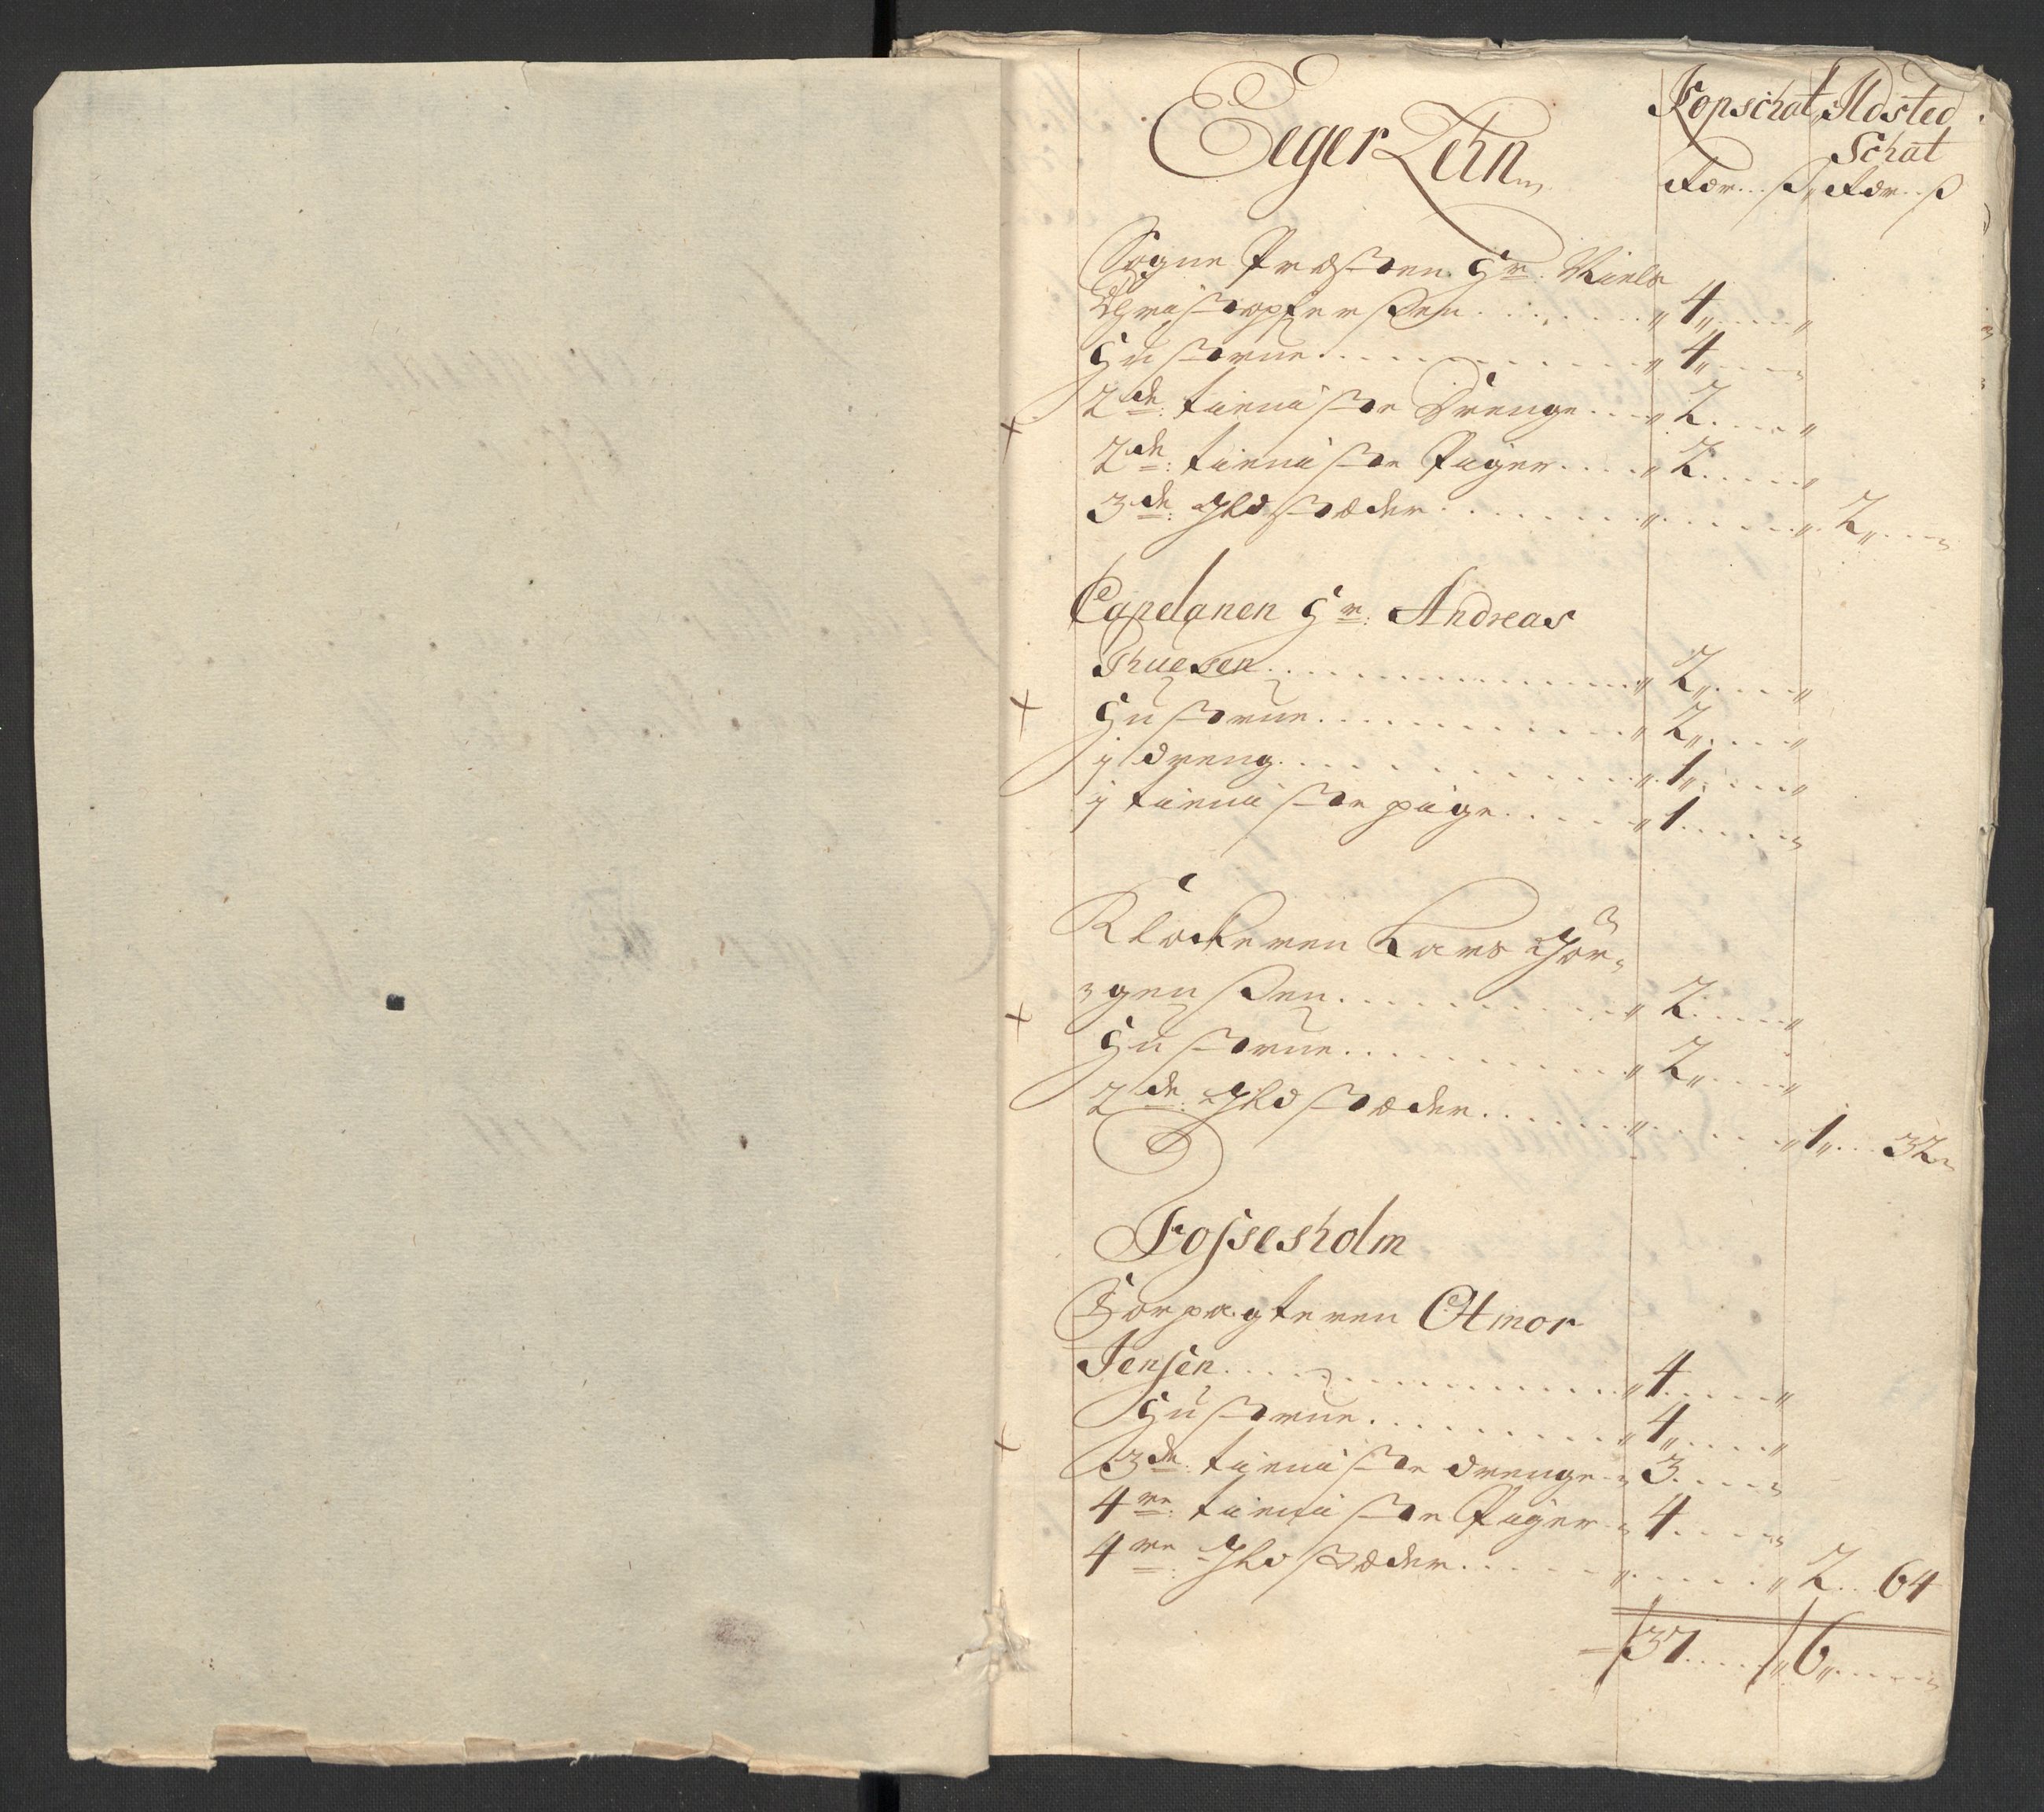 Eeger Lehn
Kopschat Ildsted
Schat
Rdr. ß Rdr. ß
Sogne Præsten Hr. Niels
Christophersen " 4 "
Hustrue " 4 "
2de tieniste Drenge " 2 "
2de tieniste Piger " 2 "
3de Ildstæder " " 2 "
Capelanen Hr. Andreas
Thuesen " 2 "
Hustrue " 2 "
1 dreng " 1 "
1 tieniste pige " 1 "
Klockeren Lars Jør-
gensen " 2 "
Hustrue " 2 "
2de Ildstæder " " 1 32
Fossesholm
Forpagteren Otmor
Jensen " 4 "
Hustrue " 4 "
3de tieniste drenge " 3 "
4re tieniste Piger " 4 "
4re Ildstæder " " 2 64
37 " 6 "